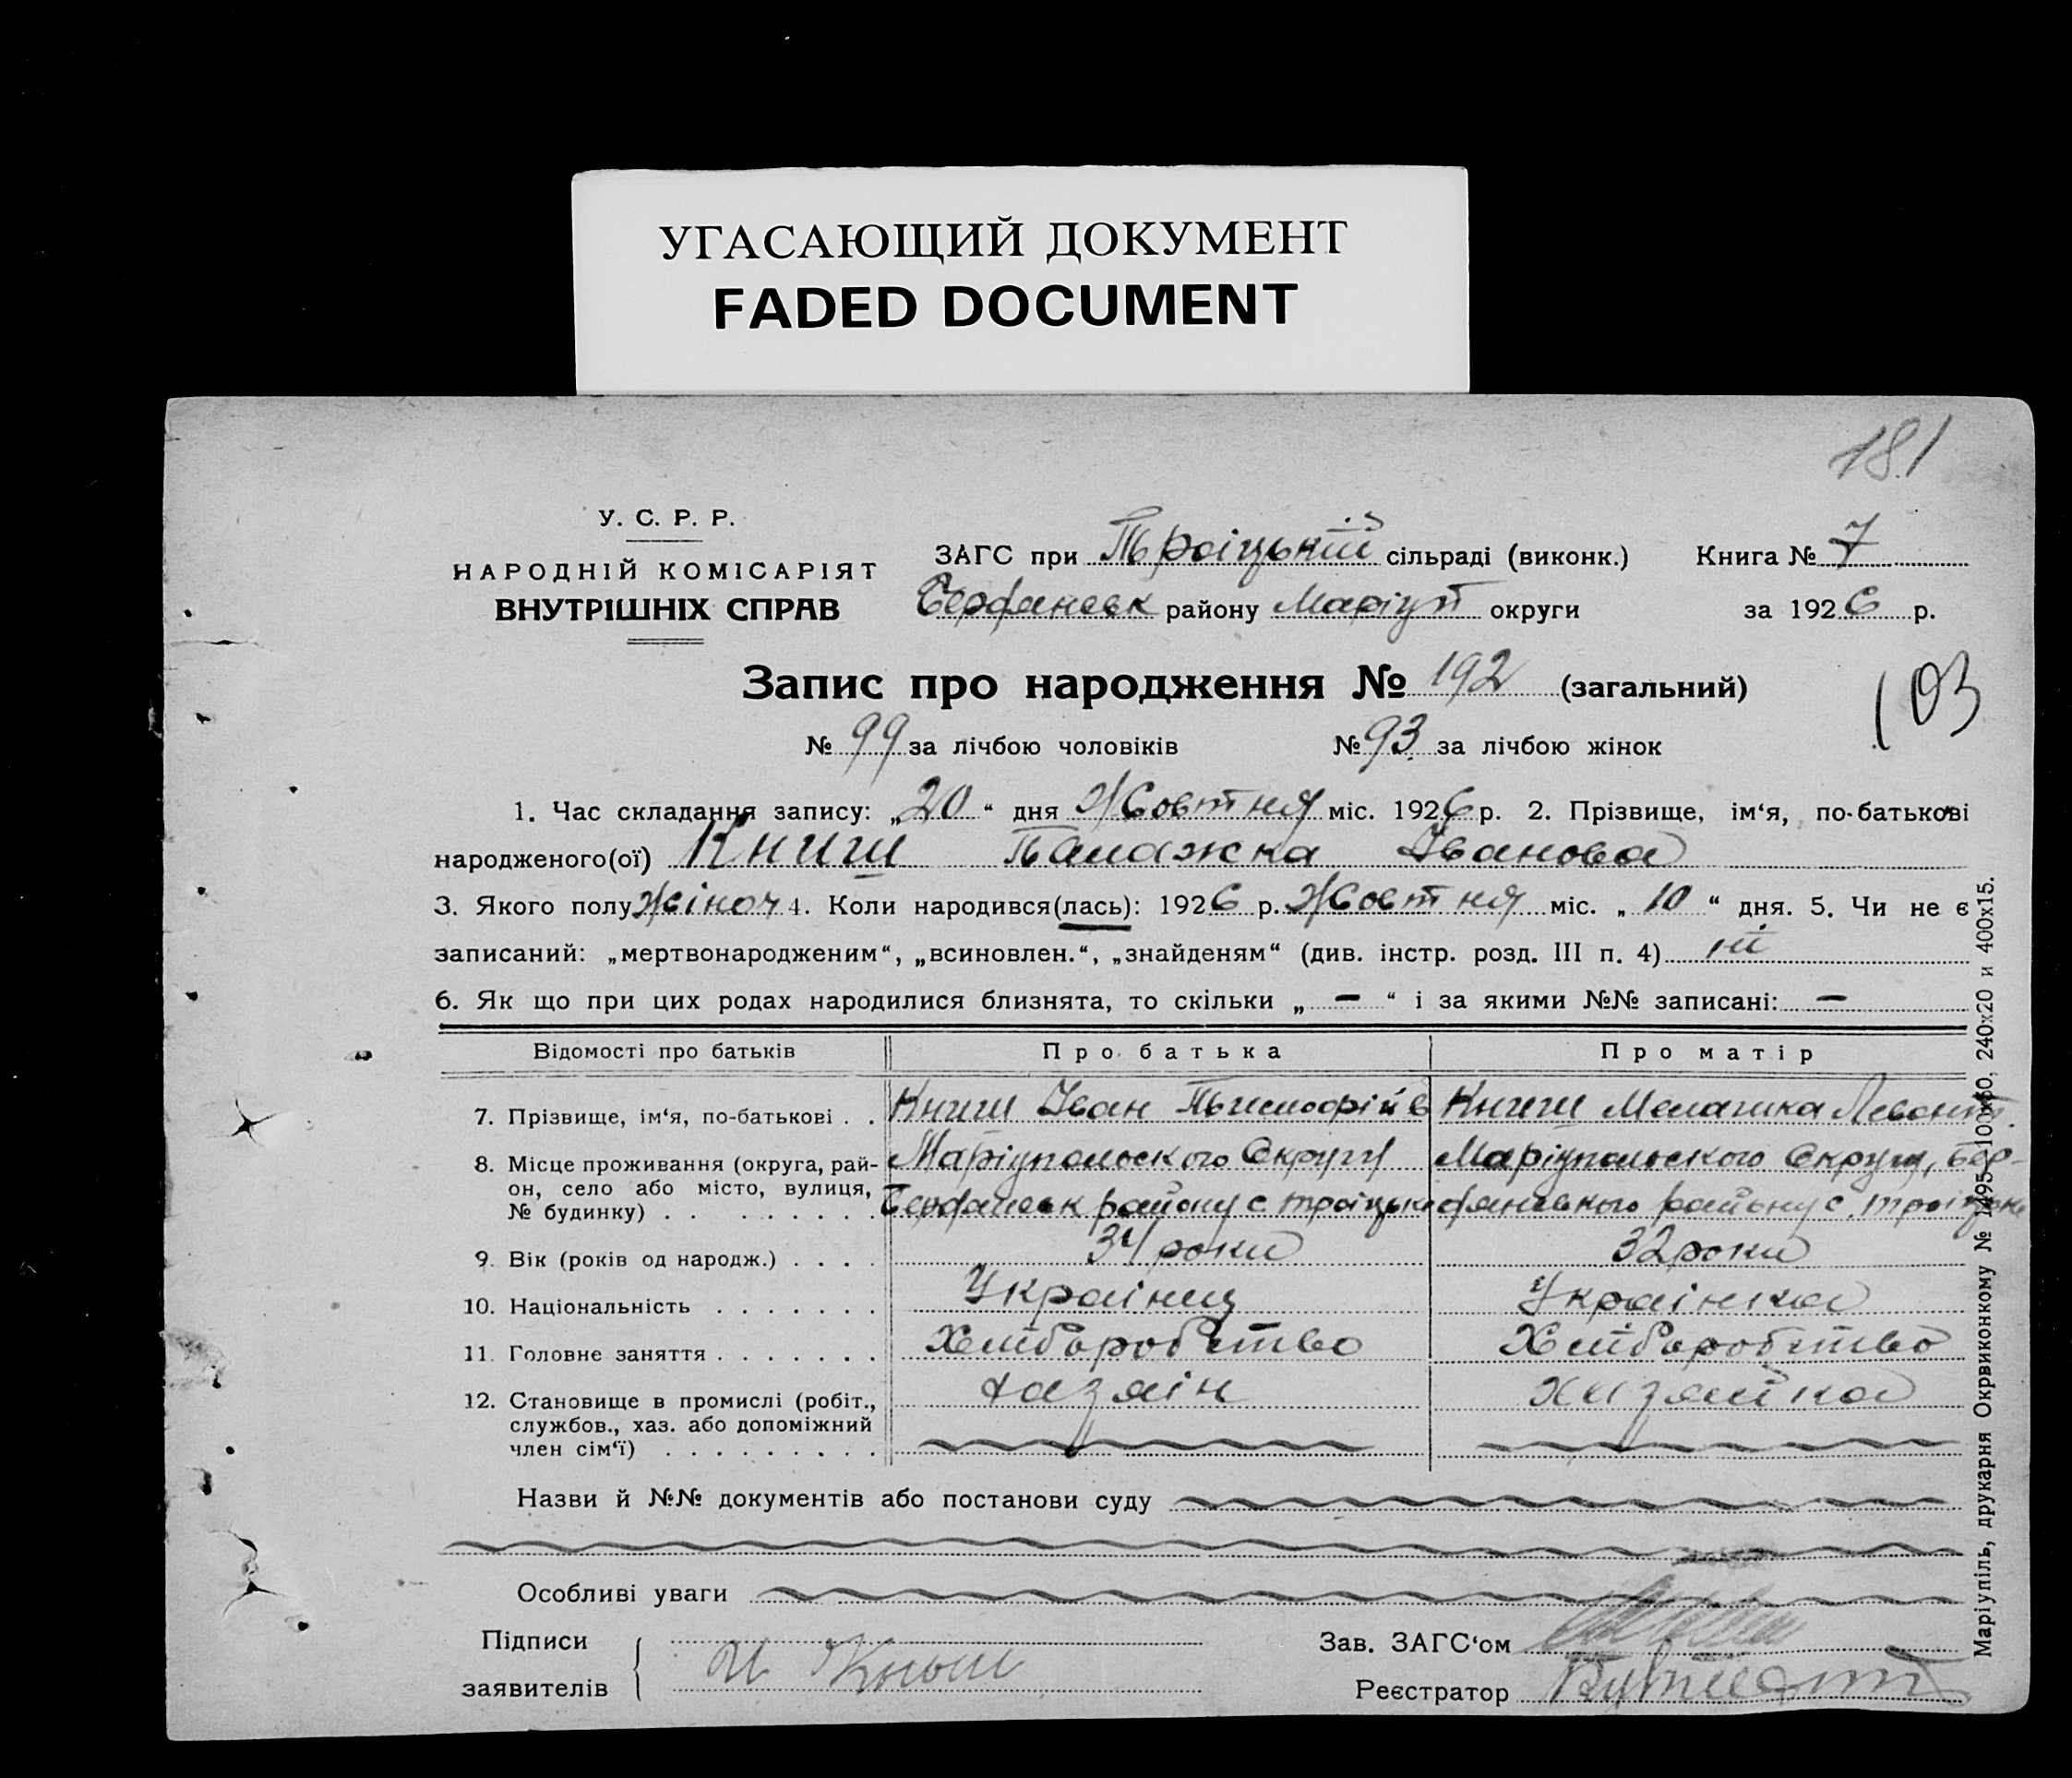 УГАСАЮЩИЙ ДОКУМЕНТ
FADED DOCUMENT
181
У. С. Р. Р.
НАРОДНІЙ КОМІСАРІЯТ
ВНУТРІШНІХ СПРАВ
ЗАГС при Троіцькій сільраді (виконк.) Книга № 7
Бердянськ району Маріуп округи за 1926 р.
Запис про народження № 192 (загальний)
103
№ 99 за лічбою чоловіків № 93 за лічбою жінок
1. Час складання запису: „20“ дня Жовтня міс. 1926 р. 2. Прізвище, ім‘я, по-батькові
народженого(ої) Книш Палажка Іванова
3. Якого полу жіноч 4. Коли народився(лась): 1926 р. Жовтня міс. „10“ дня. 5. Чи не є
записаний: „мертвонародженим“, „всиновлен.“, „знайденям“ (див. інстр. розд. III п. 4) ні
6. Як що при цих родах народилися близнята, то скільки „ — “ і за якими №№ записані: —
Відомості про батьків Про батька Про матір
7. Прізвище, ім‘я, по-батькові . . Книш Іван Книш Мелашка
8. Місце проживання (округа, рай-
он, село або місто, вулиця,
№ будинку) . . . . . . . .
Маріупольского Округу
Бердянськ району с Троіцьке
Маріупольского Округу, Бер-
дянського району с. Троіцьке
9. Вік (років од народж.) . . . . 34 роки 32 роки
10. Національність . . . . . . . Украінец Украінка
11. Головне заняття . . . . . . . Хлиборобство Хлиборобство
12. Становище в промислі (робіт.,
службов., хаз. або допоміжний
член сім‘ї) . . . . . . . . .
хазяін хазяйка
Назви й №№ документів або постанови суду
Особливі уваги
Підписи
заявителів
И Книш
Зав. ЗАГС‘ом
Реєстратор
Маріупіль, друкарня Окрвиконкому № 1495—100х50, 240х20 и 400х15.